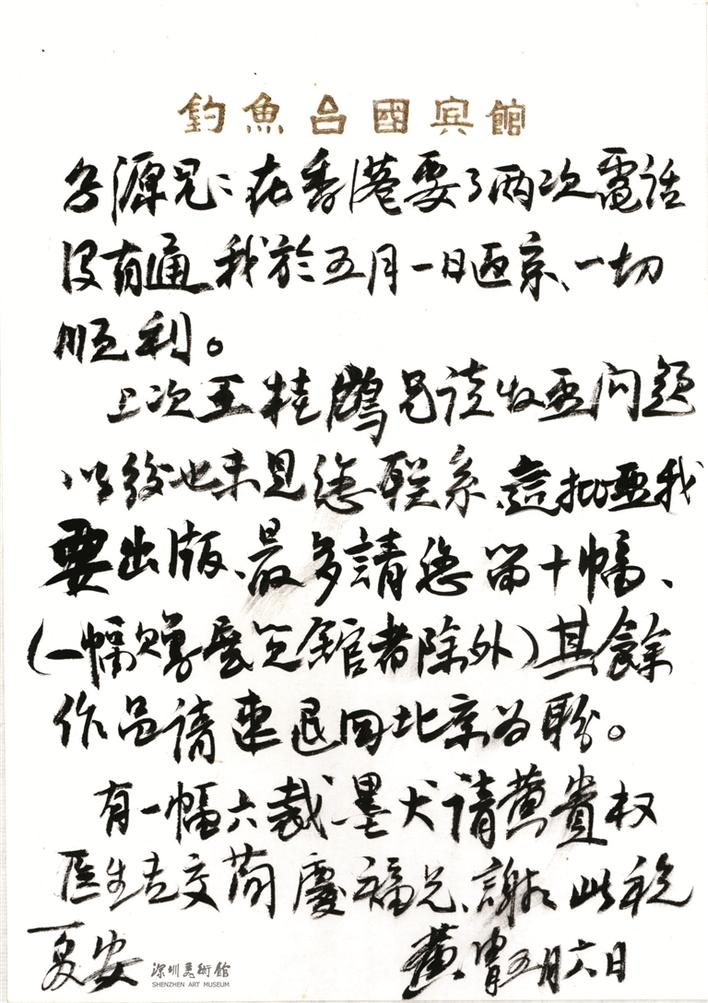 釣魚台國宾館
子源兄：在香港要了两次電話
没有通我於五月一日京、一切
順利。
上次王桂鶴兄谈收画问题
以後也未見您联系、這批画我
要出版、最多請您留十幅、
(一幅贈館者除外)其餘
作品请速退回北京为盼。
有一幅六裁墨犬请黄貴权
医生去交簡慶福兄、謝〻此祝
夏安
黄胄五月六日
深圳美術館
SHENZHEN ART MUSEUM